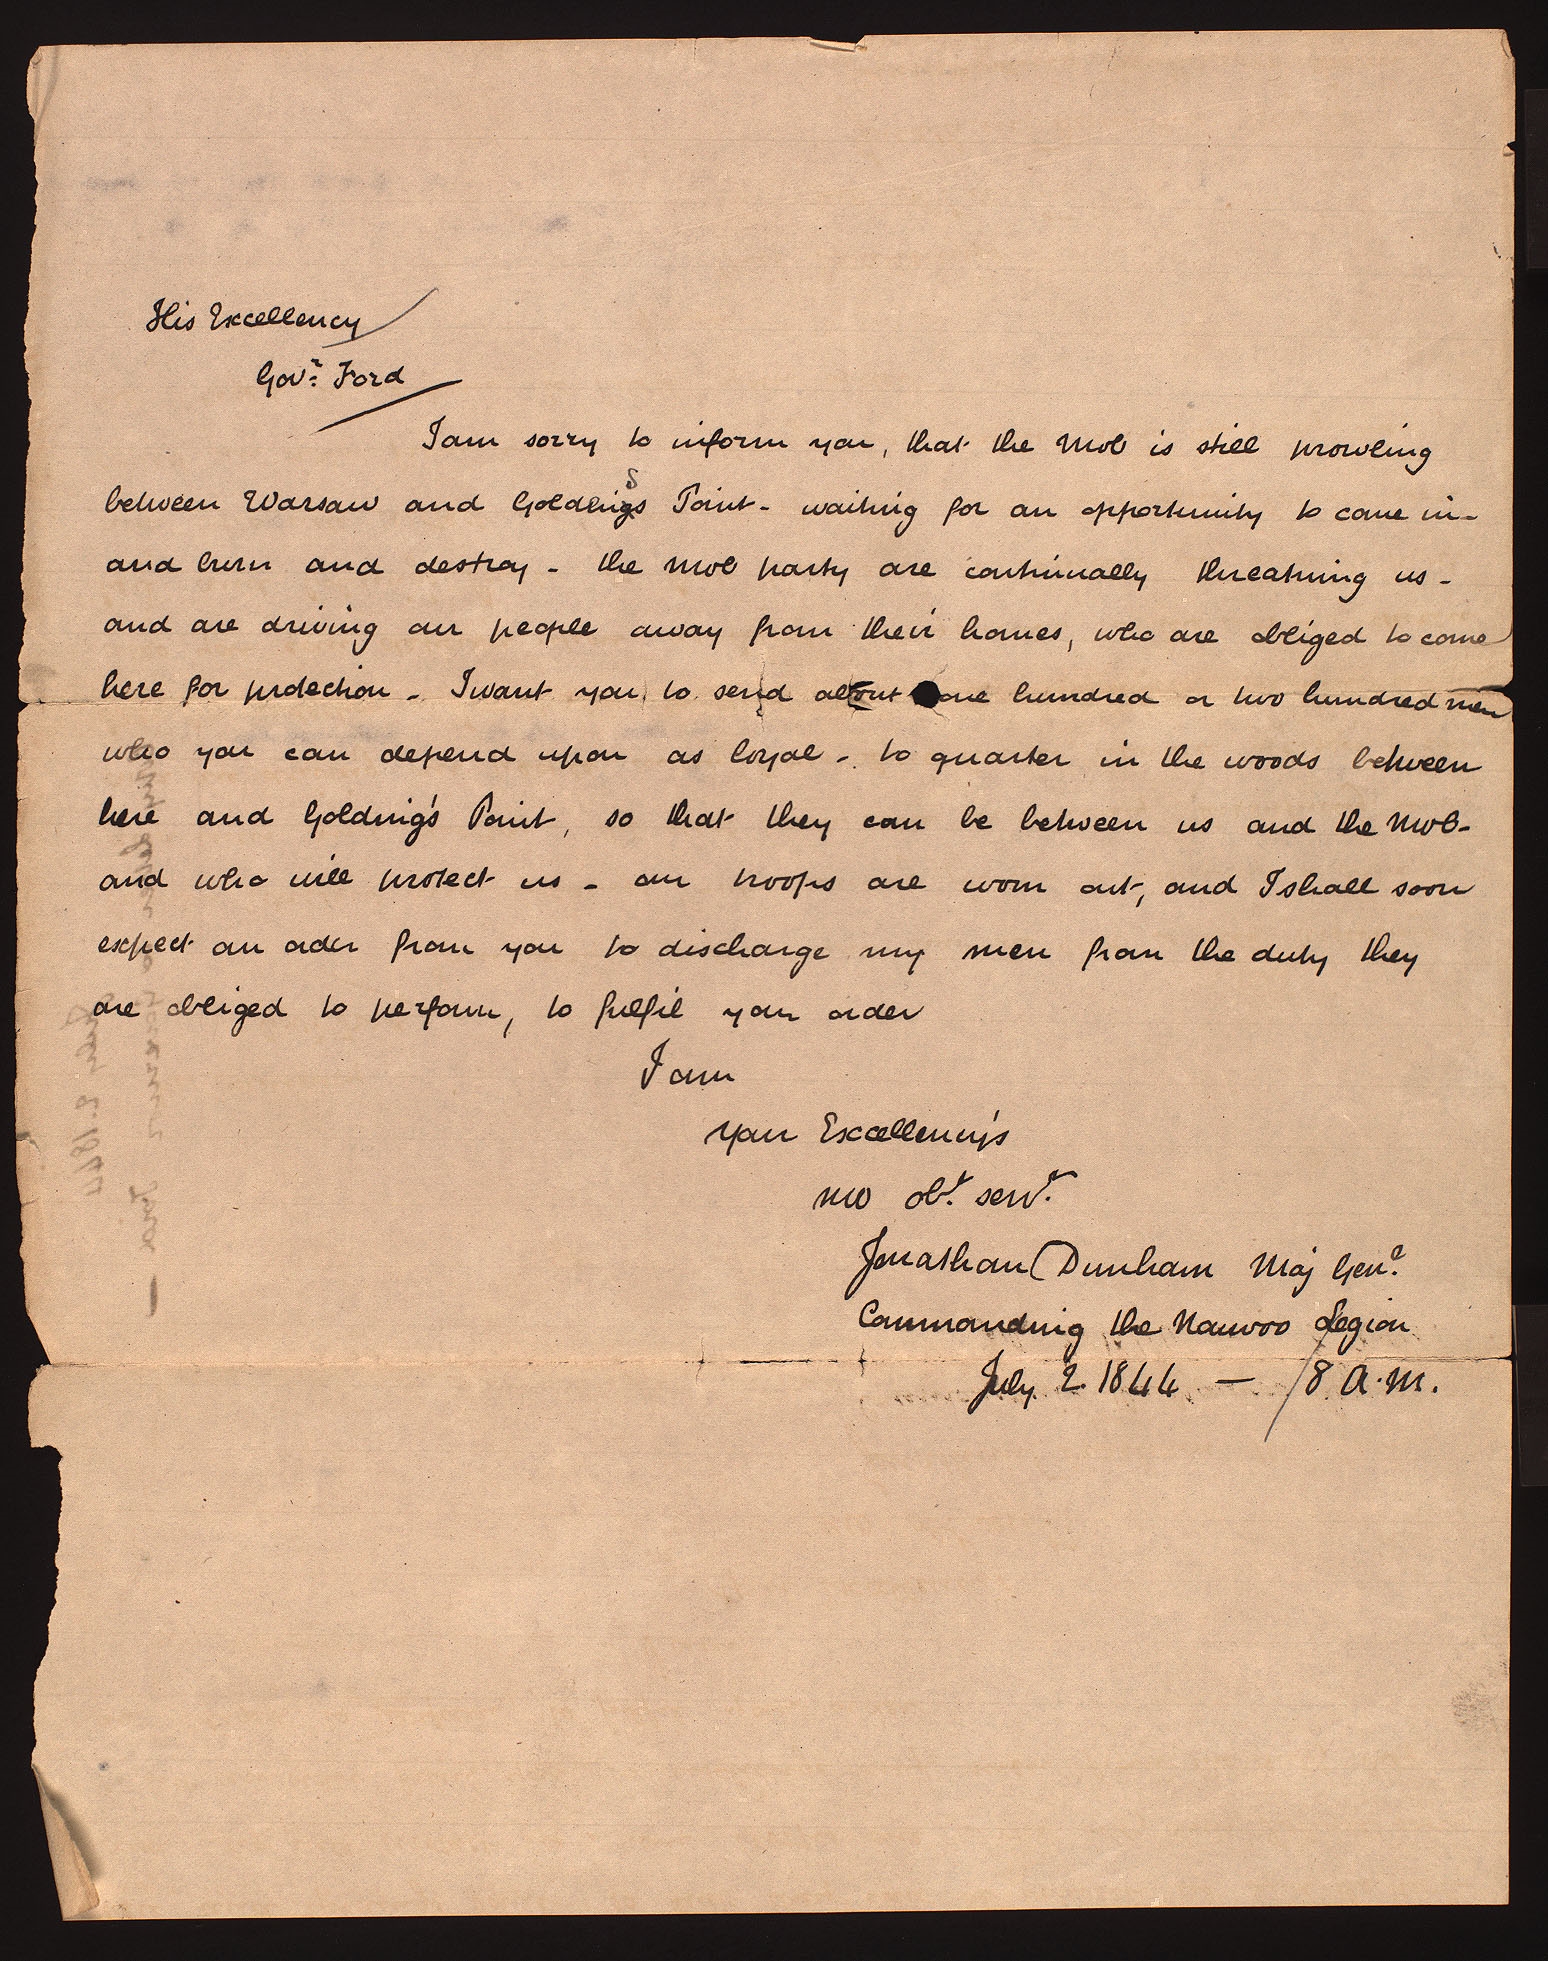 His Excellency
Govr. Ford
I am sorry to inform you, that the Mob is still prowling
between Warsaw and Goldings Point - waiting for an opportunity to come in -
and burn and destroy - the Mob party are continually threatning us -
and are driving our people away from their homes, who are obliged to come
here for protection - I want you to send about one hundred or two hundred men
who you can depend upon as loyal - to quarter in the woods between
here and Golding's Point, so that they can be between us and the Mob -
and who will protect us - our troops are worn out, and I shall soon
expect an order from you to discharge my men from the duty they
are obliged to perform, to fulfil your order
I am
your Excellency's
mo obt. servt.
Jonathan Dunham Maj Genl.
Commanding the Nauvoo Legion
July 2. 1844 — 8 A.M.